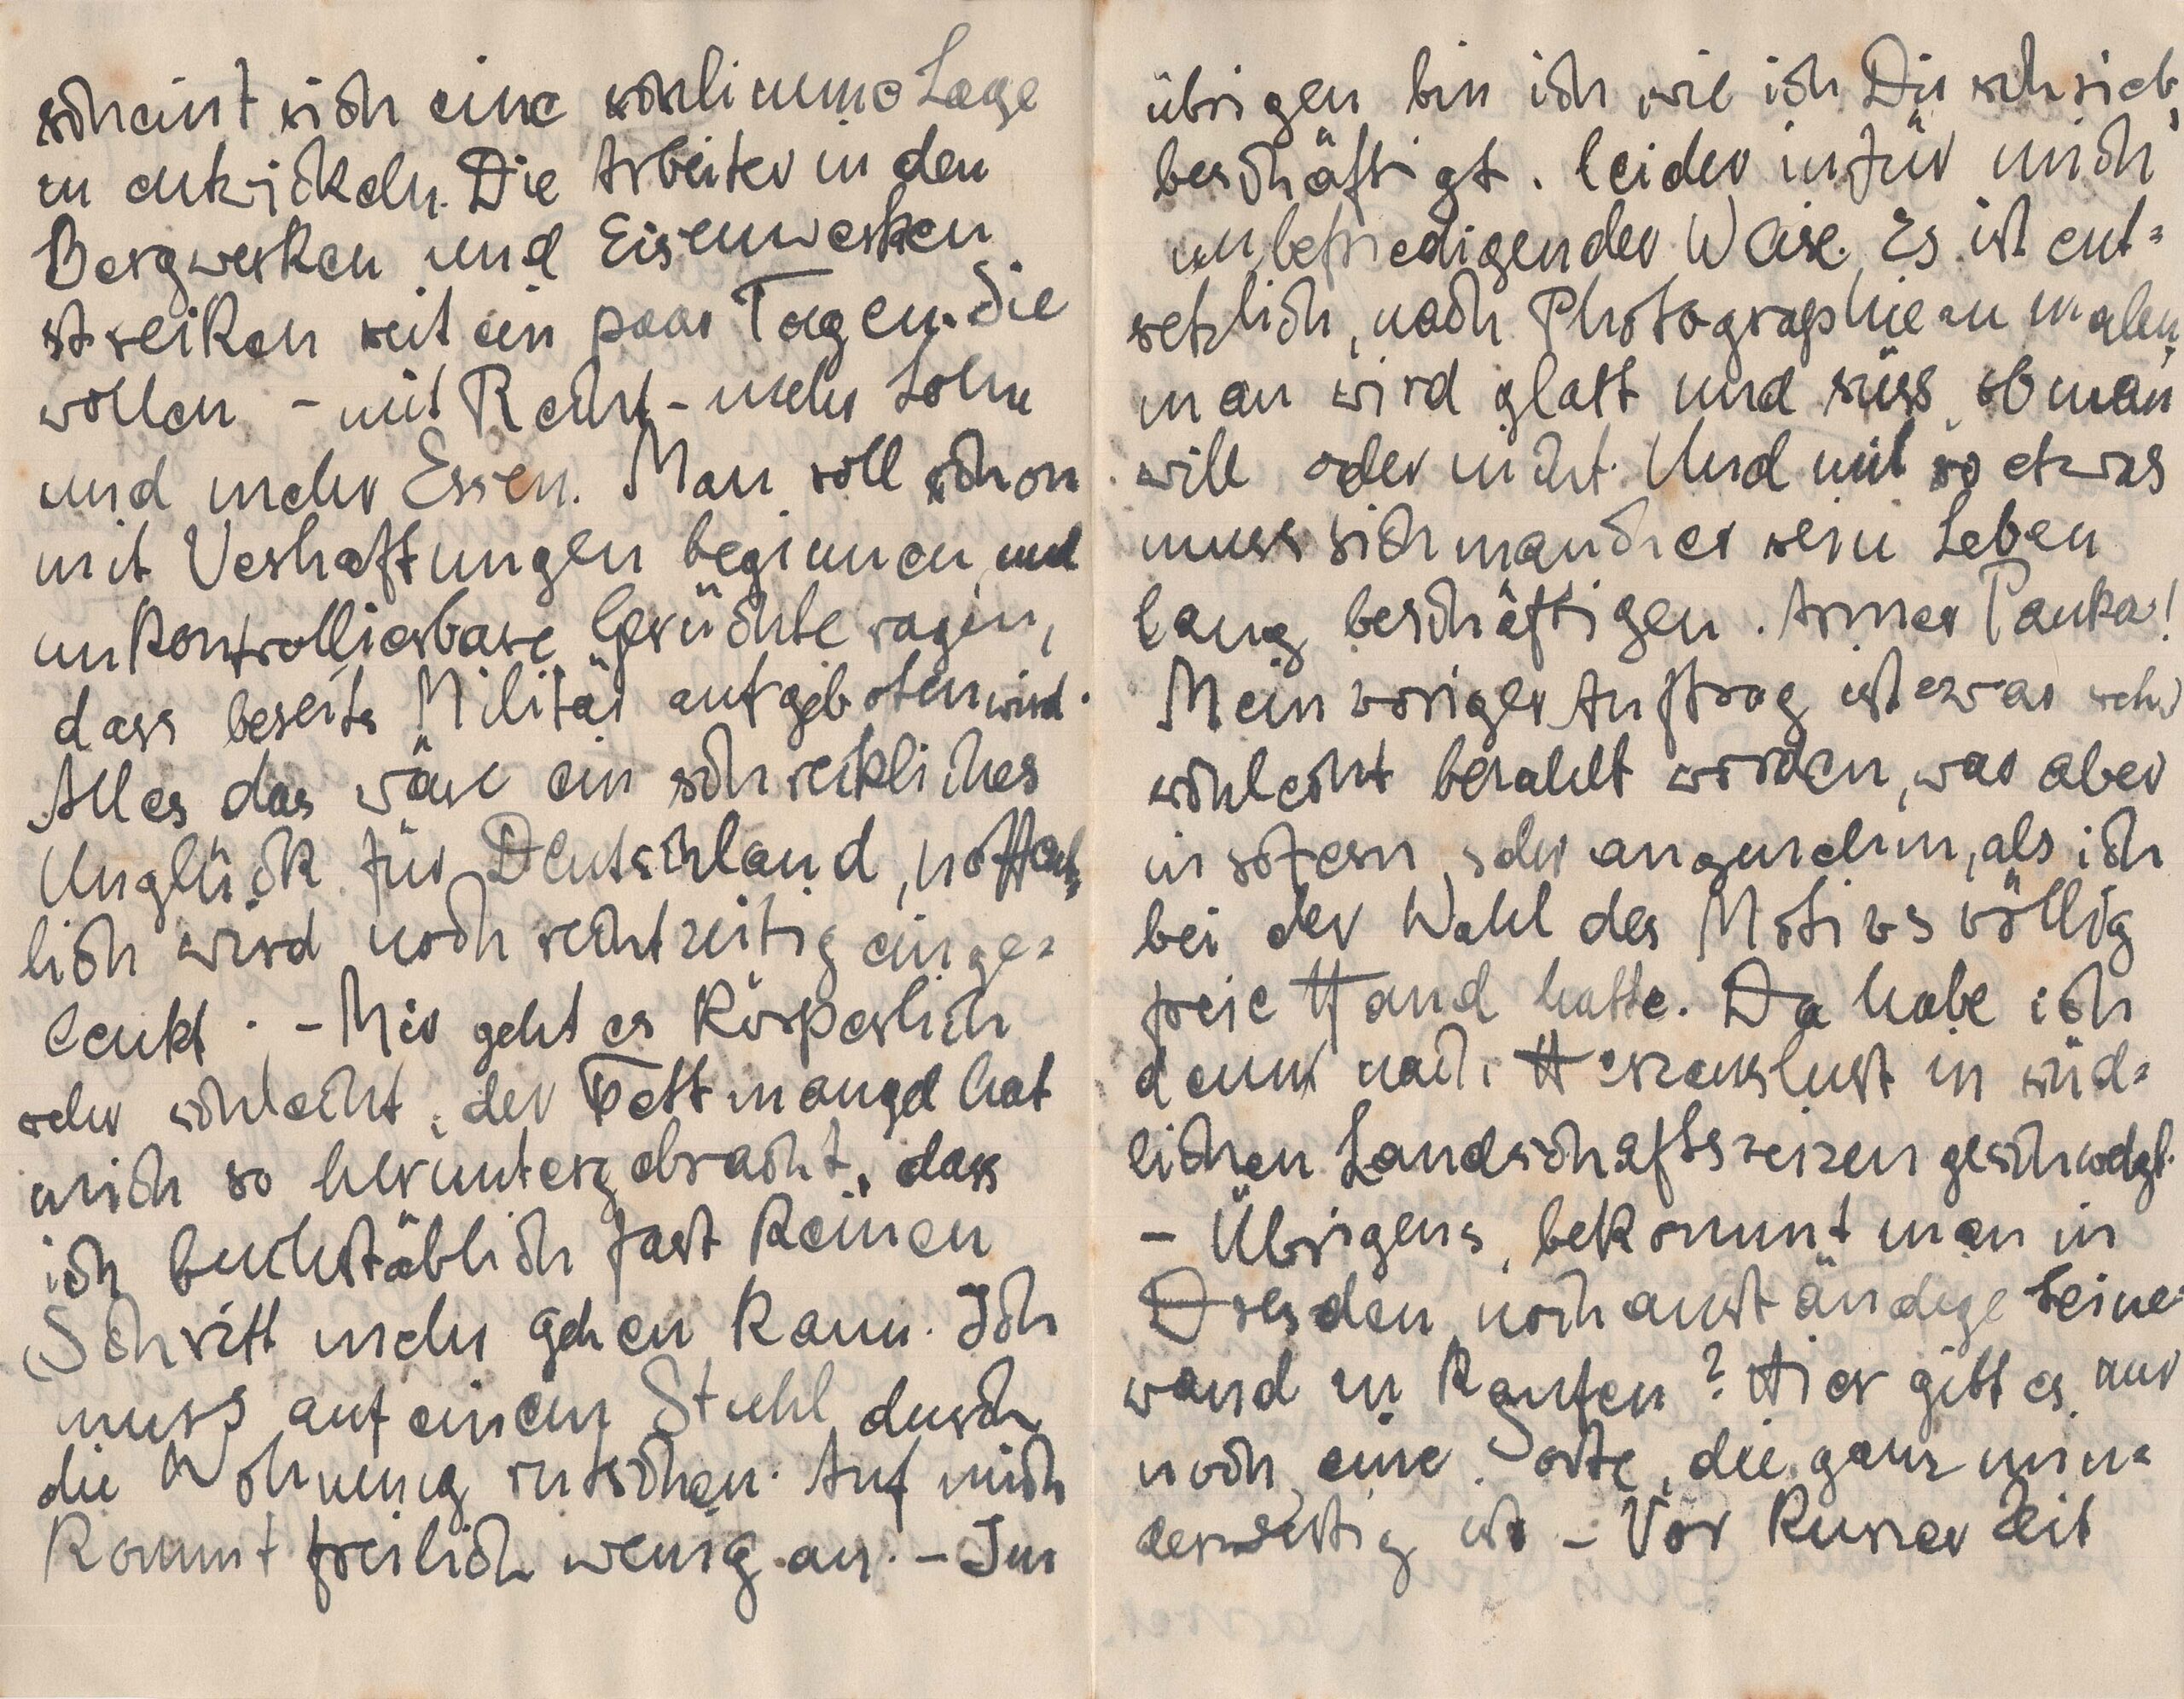 scheint sich eine schlimme Lage
zu entwickeln. Die Arbeiter in den
Bergwerken und Eisenwerken
streiken seit ein paar Tagen. Sie
wollen - mit Recht - mehr Lohn
und mehr Essen. Man soll schon
mit Verhaftungen beginnen und
unkontrollierbare Gerüchte sagen,
dass bereits Militär aufgeboten wird.
Alles das wäre ein schreckliches
Unglück für Deutschland, hoffent=
lich wird noch rechtzeitig einge=
lenkt. - Mir geht es körperlich
sehr schlecht, der Fettmangel hat
mich so heruntergebracht, dass
ich buchstäblich fast keinen
Schritt mehr gehen kann. Ich
muss auf einem Stuhl durch
die Wohnung rutschen. Auf mich
kommt freilich wenig an. - Im
übrigen bin ich, wie ich Dir schrieb,
beschäftigt. leider in für mich
unbefriedigender Weise. Es ist ent=
setzlich, nach Photographie zu malen,
man wird glatt und süss, ob man
will oder nicht. Und mit so etwas
muss sich mancher sein Leben
lang beschäftigen. Armer Panka!
Mein voriger Auftrag ist zwar sehr
schlecht bezahlt worden, was aber
insofern sehr angenehm, als ich
bei der Wahl des Motivs völlig
freie Hand hatte. Da habe ich
denn nach Herzenslust in süd=
lichen Landschaftsreizen geschwelgt.
- Übrigens, bekommt man in
Dresden noch anständige Leine=
wand zu kaufen? Hier gibt es nur
noch eine Sorte, die ganz min=
derwertig ist - Vor kurzer Zeit